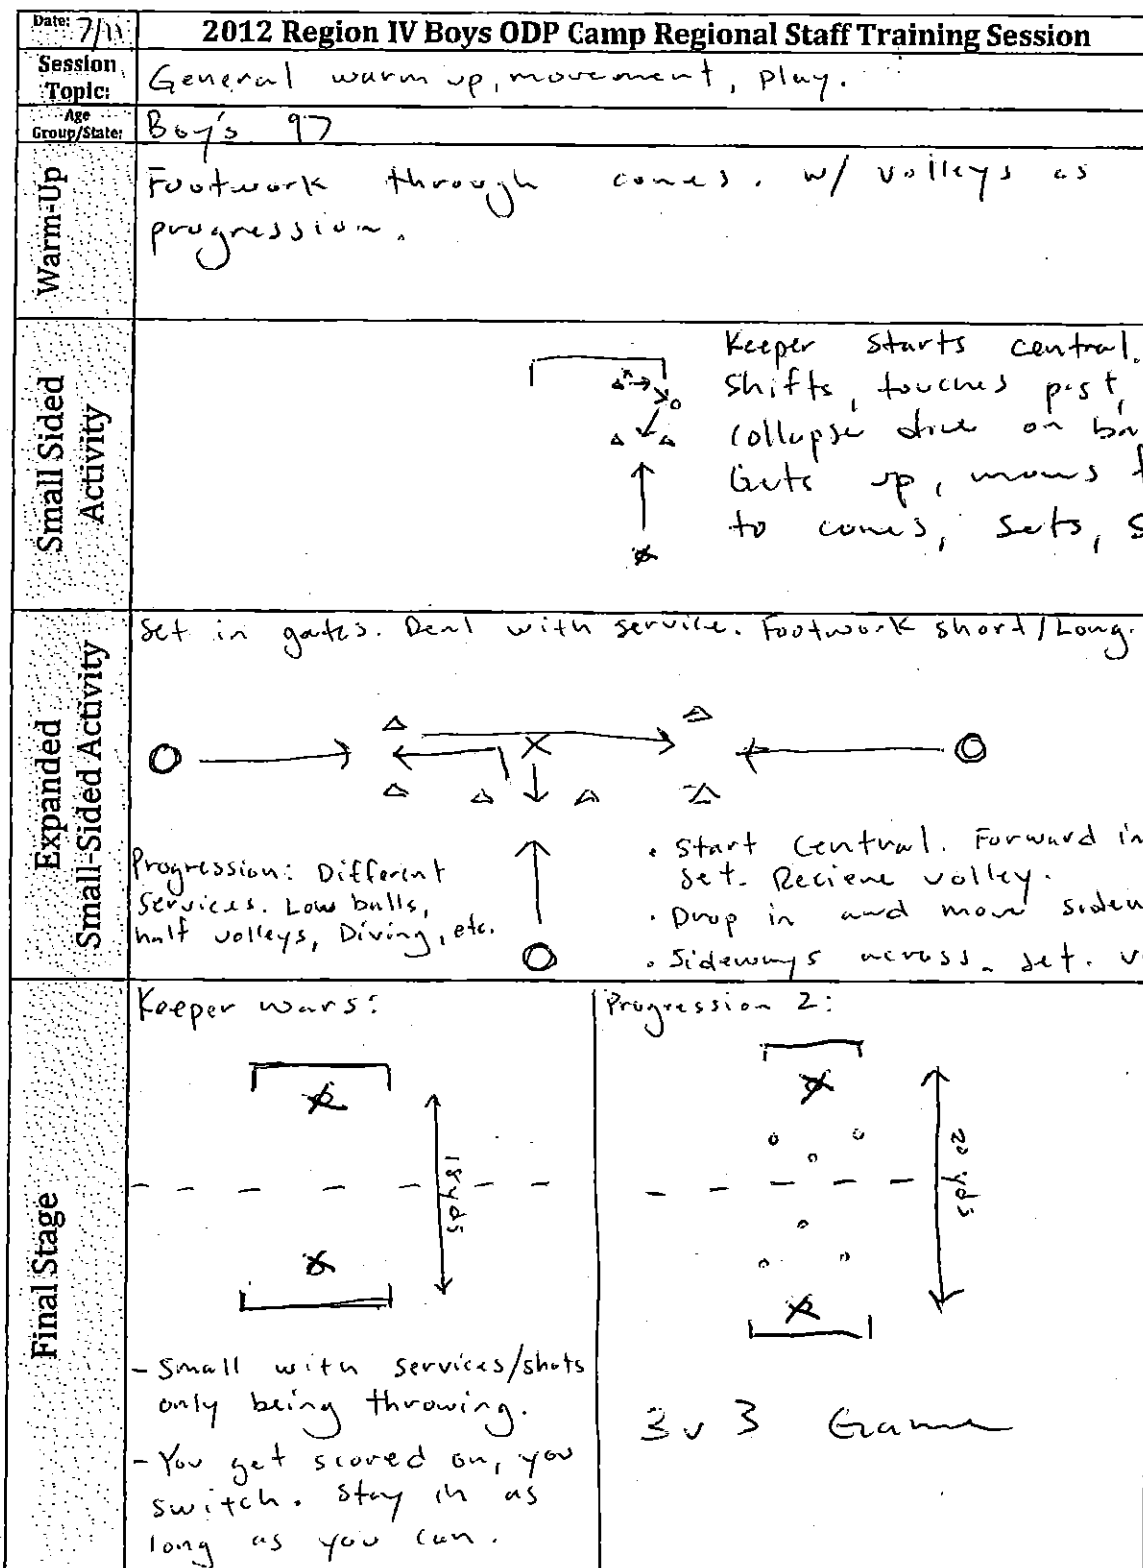 Date: 7/11
2012 Region IV Boys ODP Camp Regional Staff Training Session
Session Topic:
General warm up, movement, play.
Age Group/State:
Boy's 97
Warm-Up
Footwork through cones. w/ volleys as
progression.
Small Sided
Activity
Keeper starts central.
Shifts, touches post,
collapse dive on
Gets up, moves
to cones, sets,
Expanded
Small-Sided Activity
Set in gates. Deal with service. Footwork short/Long.
Progression: Different
Services. Low balls,
half volleys, Diving, etc.
• Start Central. Forward in
Set. Recieve volley.
• Drop in and move
• Sideways across. Set.
Final Stage
Keeper wars:
18 yds
- Small with services/shots
only being throwing.
- You get scored on, you
switch. Stay in as
long as you can.
Progression 2:
20 yds
3v3 Game